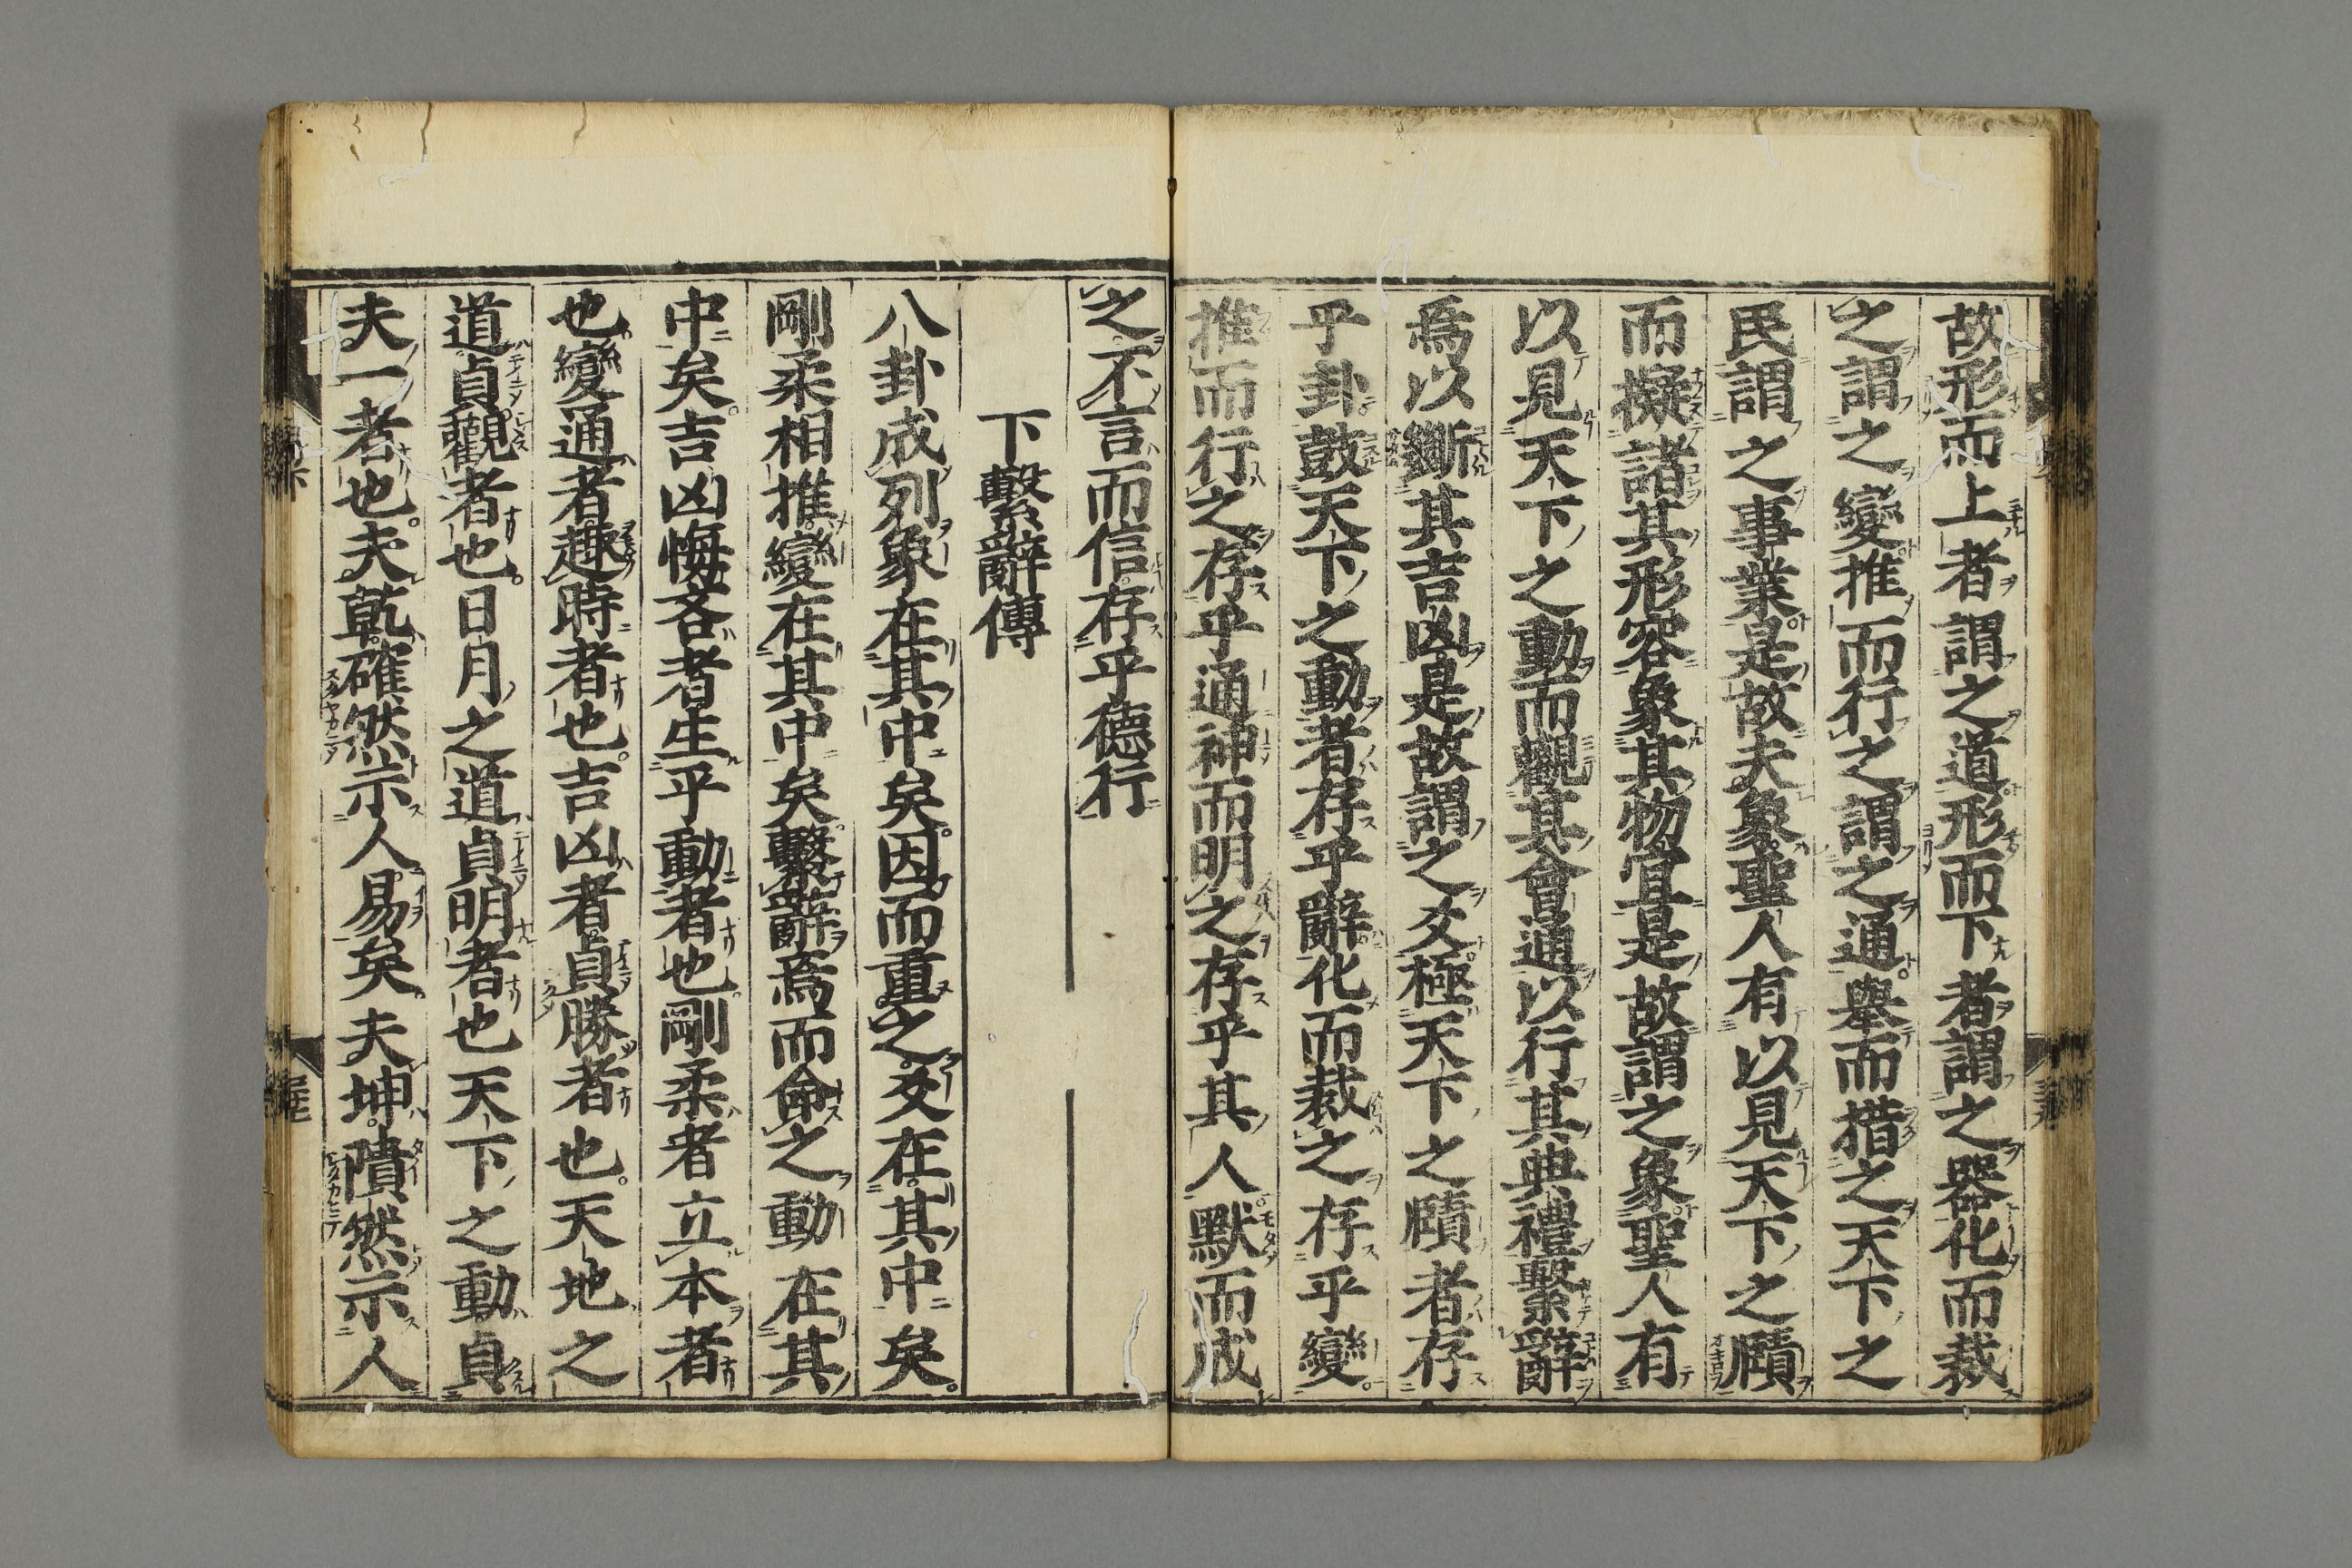 故形而上者謂之道形而下者謂之器化而裁
之謂之變推而行之謂之通舉而措之天下之
民謂之事業是故夫象聖人有以見天下之賾
而擬諸其形容象其物宜是故謂之象聖人有
以見天下之動而觀其會通以行其典禮繫辭
焉以斷其吉凶是故謂之爻極天下之賾者存
乎卦鼓天下之動者存乎辭化而裁之存乎變
推而行之存乎通神而明之存乎其人默而成
之不言而信存乎德行
下繫辭傳
八卦成列象在其中矣因而重之爻在其中矣
剛柔相推變在其中矣繫辭焉而命之動在其
中矣吉凶悔吝者生乎動者也剛柔者立本者
也變通者趣時者也吉凶者貞勝者也天地之
道貞觀者也日月之道貞明者也天下之動貞
夫一者也夫乾確然示人易矣夫坤隤然示人